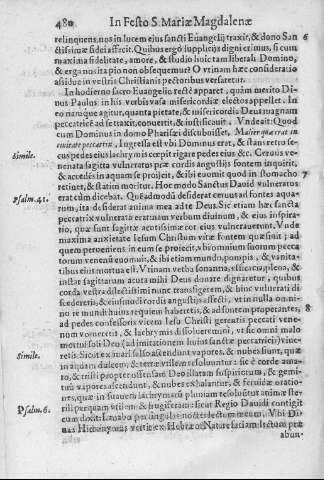 480 In Festo S. Mariæ Magdalenæ
relinquens, nos in lucem eius sancti Euangelij traxit, & dono San 6
ctissimæ fidei affecit. Quibus ergo supplicijs digni erimus, si cum
maxima fidelitate, amore, & studio huic tam liberali Domino,
& erga nos ita pio non obsequemur? O vtinam hæc consideratio
assidue in vestris Christianis pectoribus versaretur.
In hodierno sacro Euangelio recte apparet, quàm merito Di-
uus Paulus in his verbis vasa misericordiæ electos appellet. In
eo namque agitur, quanta pietate, & misericordia Deus magnam
peccatricé ad se traxit, conuertit, & iustificauit. Vndeait: Quod
cum Dominus in domo Pharisæi discubuisset, Mulier quæ erat in
Simile. ciuitate peccatrix. Ingressa est vbi Dominus erat, & stans retro se-
cus pedes eius lachrymis cœpit rigare pedes eius &c. Ceruus ve-
nenata sagitta vulneratus præ cordis angustijs fontem inquirit,
& accedés in aquam se proijcit, & ibi euomit quod in stomacho 7
retinet, & statim moritur. Hoc modo Sanctus Dauid vulneratus
Psalm. 41. erat cùm dicebat. Quéadmodú desiderat ceruus ad fontes aqua-
rum, ita desiderat anima mea ad te Deus. Sic etiam hæc sancta
peccatrix vulnerata erat
verbum diuinum, & eius inspira-
tio, quæ sunt sagitæ acutissimæ cor eius vulnerauerant. Vnde
maxima anxietate Iesum Christum vitæ Fontem quæsiuit; ad
quem perueniens in eum se proiecit, vbi omnium suorum pecca
torum venenú euomuit, & ibi etiam mundo, pompis, & vanita-
tibus eius mortua est. Vtinam verba sonantia, efficacia, plena, &
instar sagittarum acuta mihi Deus donare dignaretur, quibus
corda vestra dilectissimi nunc transfigerem, & hinc vulnerati di
scederetis, & eiusmodi cordis angustijs affecti, vt in nulla omni-
no re mundi huius requiem haberetis, & ad fontem properantes, 8
ad pedes confessoris vicem Iesu Christi gerentis peccati vene-
num vomeretis, & lachrymis dissolueremini, vt sic omni malo
mortui soli Deo (ad imitationem huius sanctæ peccatricis) viue-
Simile. retis. Sicut ex mari salso ascendunt vapores, & nubes fiunt, quæ
in aquam dulcem, & terræ vtilem resoluuntur: sic è corde ama-
ro, & tristi propter offensam Deo illatam suspiriorum, & gemi-
tuú vapores ascendunt, & nubes exhalantur, & feruidæ oratio-
nes, quæ in suauem lachrymarú pluuiam resoluútur animæ ste-
Psalm. 6. rili perquam vtilem & frugiferam: sicut Regio Dauidi contigit
cum dixit: Lauabo per singulas noctes lectum meum. Vbi Di-
uus Hieronymus vertit ex Hebræo: Natare faciam lectum meũ
abun-